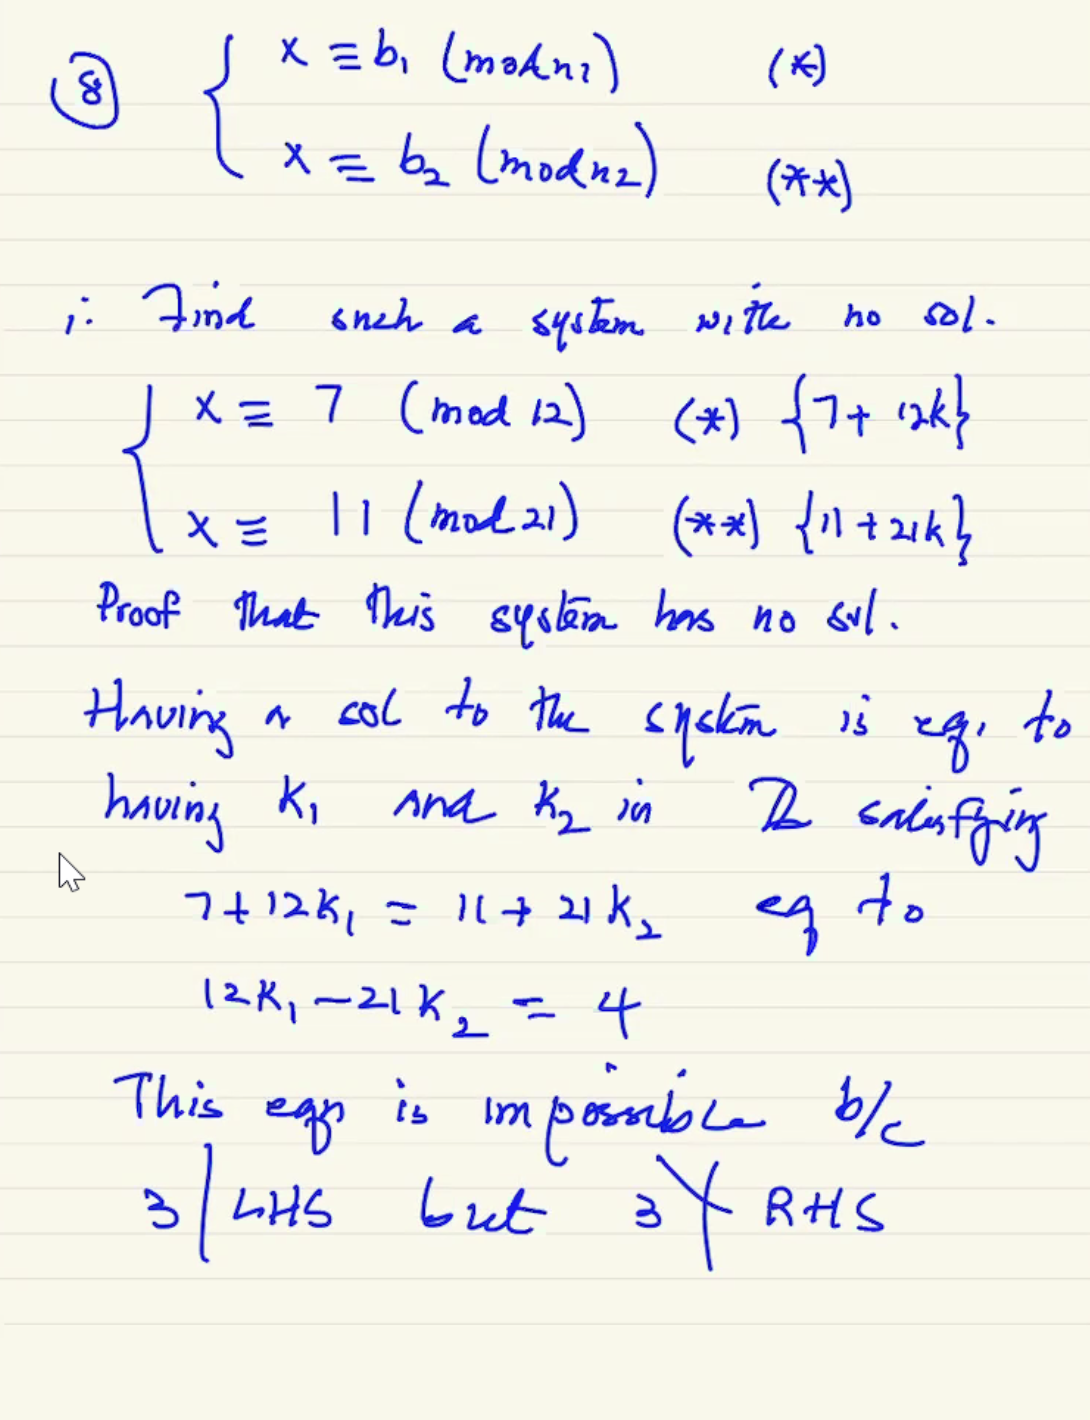 ⑧ { x ≡ b₁ (mod n₁) (*)
x ≡ b₂ (mod n₂) (**)
i. Find such a system with no sol.
{ x ≡ 7 (mod 12) (*) {7+ 12k}
x ≡ 11 (mod 21) (**) {11 + 21k}
Proof that this system has no sol.
Having a sol to the system is eq. to
having K₁ and K₂ in ℤ satisfying
7+12K₁ = 11 + 21 K₂ eq to
12K₁ − 21 K₂ = 4
This eqn is impossible b/c
3 | LHS but 3 ∤ RHS